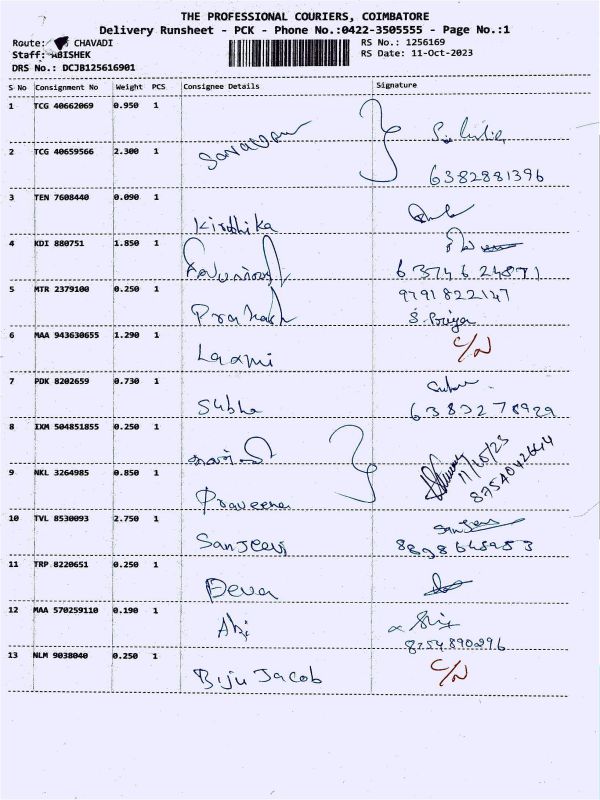 THE PROFESSIONAL COURIERS, COIMBATORE
Delivery Runsheet - PCK - Phone No.:0422-3505555 - Page No.:1
Route: CHAVADI RS No.: 1256169
Staff: ABISHEK RS Date: 11-Oct-2023
DRS No.: DCJB125616901
S No Consignment No Weight PCS Consignee Details Signature
1 TCG 40662069 0.950 1
2 TCG 40659566 2.300 1 6382881396
3 TEN 7608440 0.090 1 Kirthika
4 KDI 880751 1.850 1 6374624871
5 MTR 2379100 0.250 1 Prakash 9791822147 S. Priya
6 MAA 943630655 1.290 1 Laxmi C/N
7 PDK 8202659 0.730 1 Subha
8 IXM 504851855 0.250 1 11/10/23
9 NKL 3264985 0.850 1 Praveena
10 TVL 8530093 2.750 1 Sanjeevi
11 TRP 8220651 0.250 1 Deva
12 MAA 570259110 0.190 1 Abi
13 NLM 9038040 0.250 1 Biju Jacob C/N